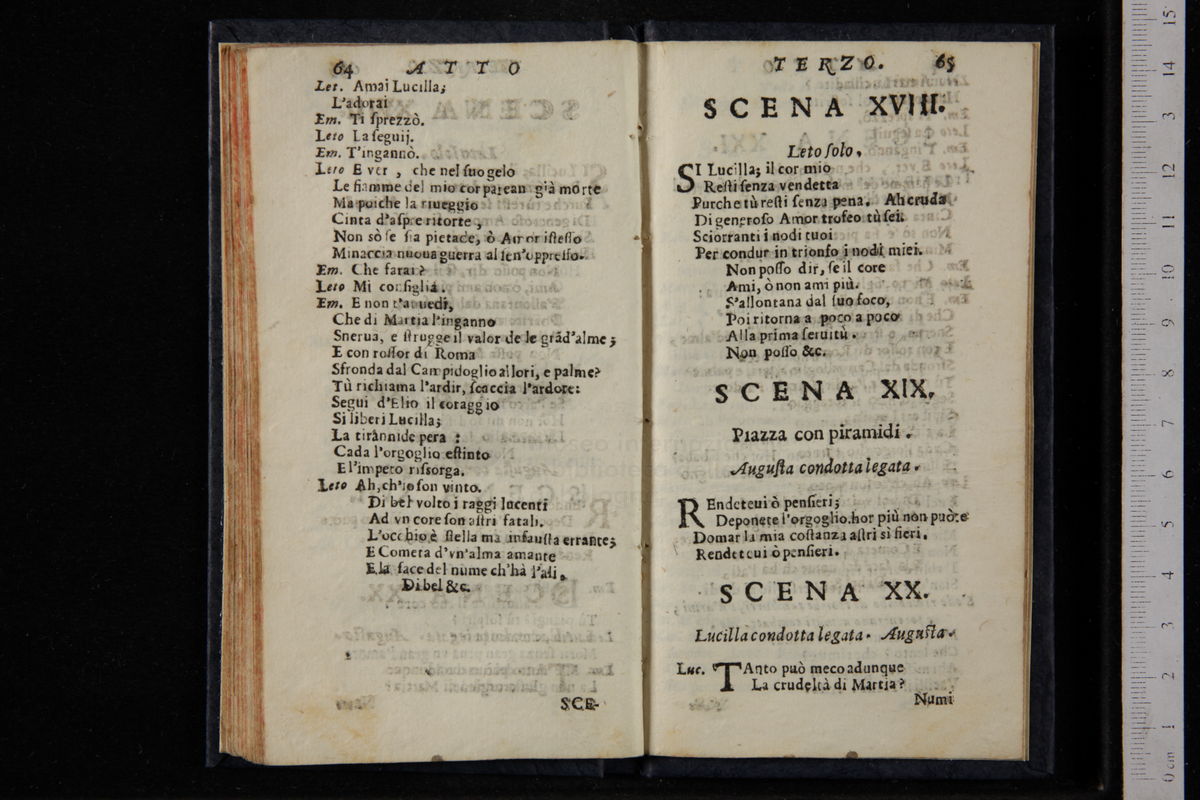 64 ATTO
Let. Amai Lucilla;
L'adorai
Em. Ti ſprezzò.
Leto La ſeguij.
Em. T'ingannò.
Leto E ver, che nel ſuo gelo
Le fiamme del mio cor parean già morte
Ma poiche la riueggio
Cinta d'aſpre ritorte,
Non sò ſe ſia pietade, ò Amor iſteſſo
Minaccia nuoua guerra al ſen'oppreſſo.
Em. Che farai?
Leto Mi conſiglia.
Em. E non t'auuedi,
Che di Martia l'inganno
Snerua, e ſtrugge il valor de le grãd'alme;
E con roſſor di Roma
Sfronda dal Campidoglio allori, e palme?
Tù richiama l'ardir, ſcaccia l'ardore:
Segui d'Elio il coraggio
Si liberi Lucilla;
La tirannide pera:
Cada l'orgoglio eſtinto
E l'impero riſorga.
Leto Ah, ch'io ſon vinto.
Di bel volto i raggi lucenti
Ad vn core ſon aſtri fatali.
L'occhio è ſtella ma infauſta errante;
E Cometa d'vn'alma amante
E la face del nume ch'hà l'ali.
Di bel &c.
SCE-
TERZO. 65
SCENA XVIII.
Leto ſolo.
SI Lucilla; il cor mio
Reſti ſenza vendetta
Purche tù reſti ſenza pena. Ah cruda
Di generoſo Amor trofeo tù ſei.
Sciorranti i nodi tuoi
Per condur in trionfo i nodi miei.
Non poſſo dir, ſe il core
Ami, ò non ami più.
S'allontana dal ſuo foco,
Poi ritorna a poco a poco
Alla prima ſeruitù.
Non poſſo &c.
SCENA XIX.
Piazza con piramidi.
Auguſta condotta legata.
REndeteui ò penſieri;
Deponete l'orgoglio. hor più non puóte
Domar la mia coſtanza aſtri sì fieri.
Rendeteui ò penſieri.
SCENA XX.
Lucilla condotta legata. Auguſta.
Luc. TAnto può meco adunque
La crudeltà di Martia?
Numi
0 cm 1 2 3 4 5 6 7 8 9 10 11 12 13 14 15